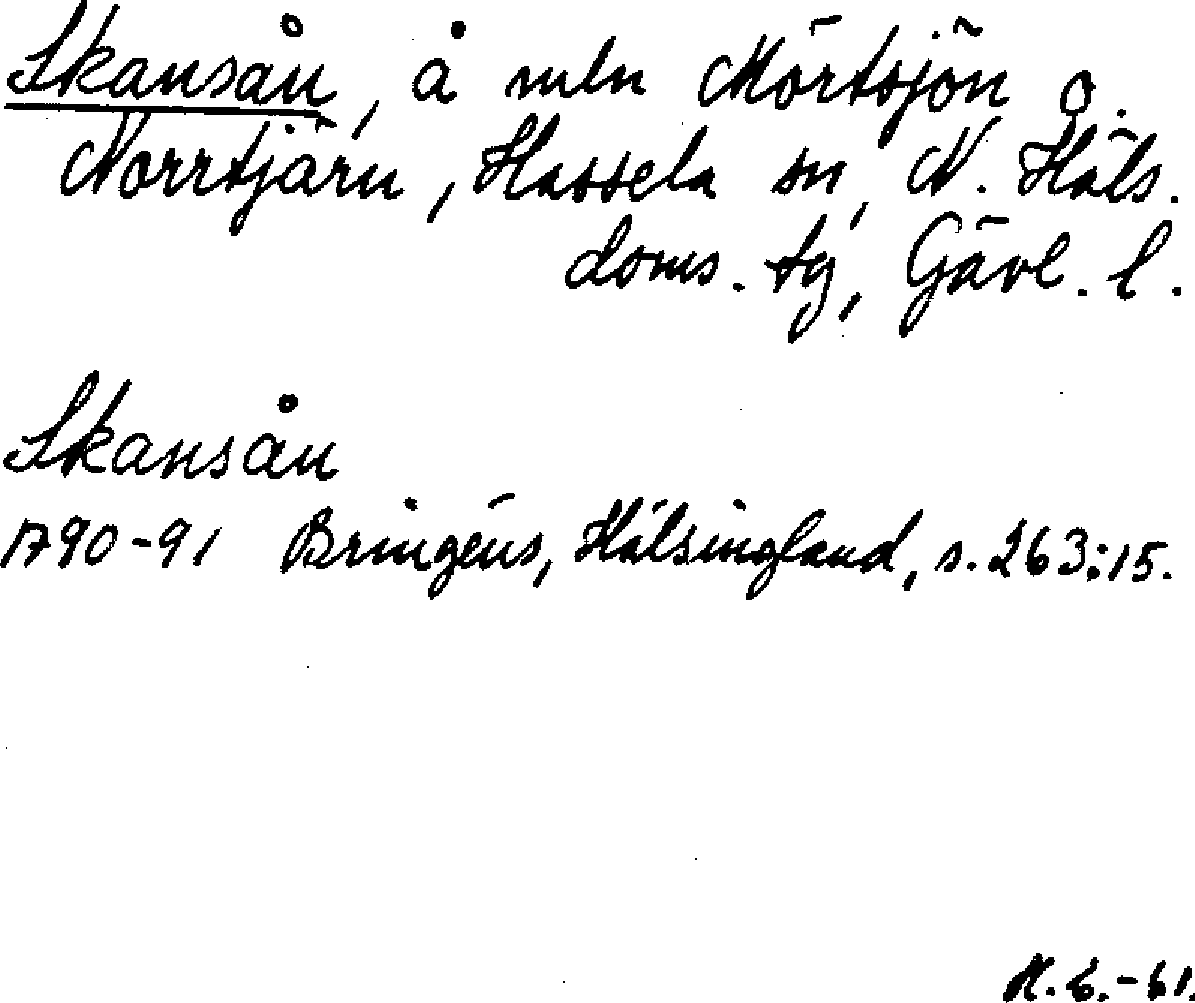 Skansån, å mln Mörtsjön o.
Norrtjärn, Hassela sn, N. Häls.
doms. tg, Gävl. l.
Skansån
1790-91 Bringéus, Hälsingland, s. 263:15.